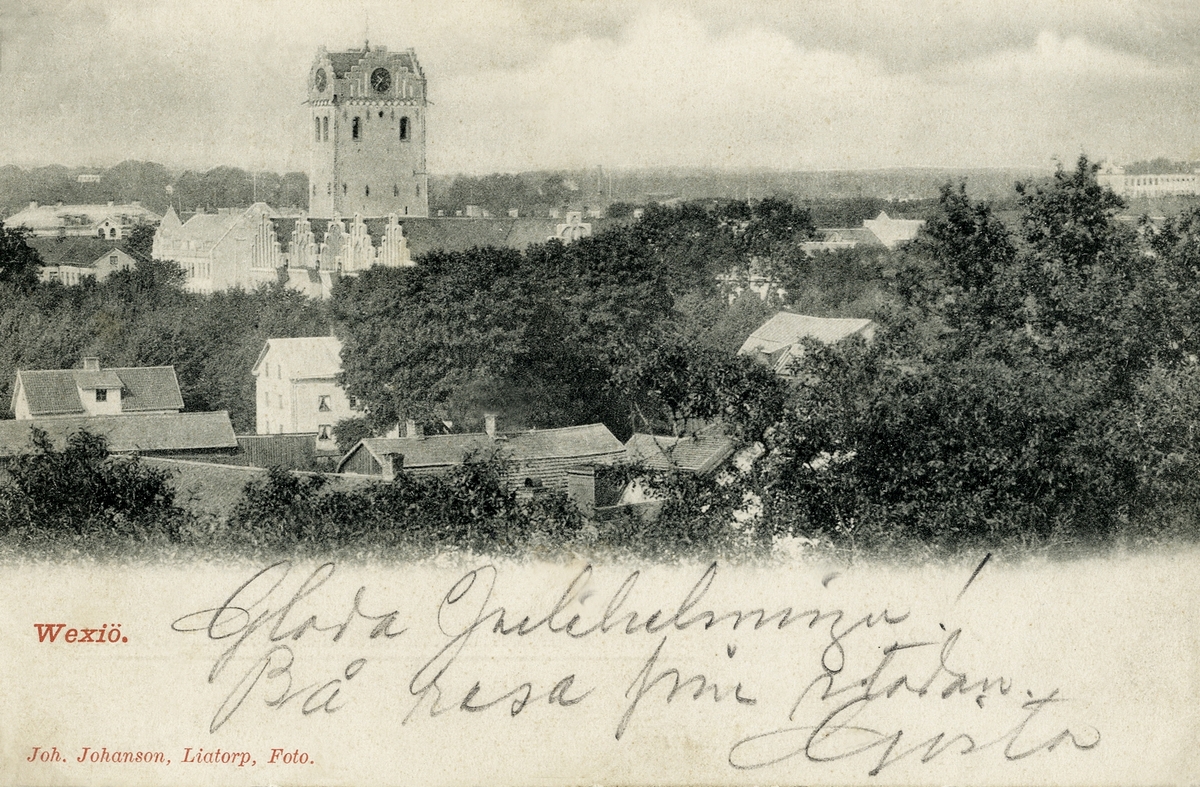 Wexiö.
Glada Julihelsninga!
På resa från staden.
Gösta
Joh. Johanson, Liatorp, Foto.